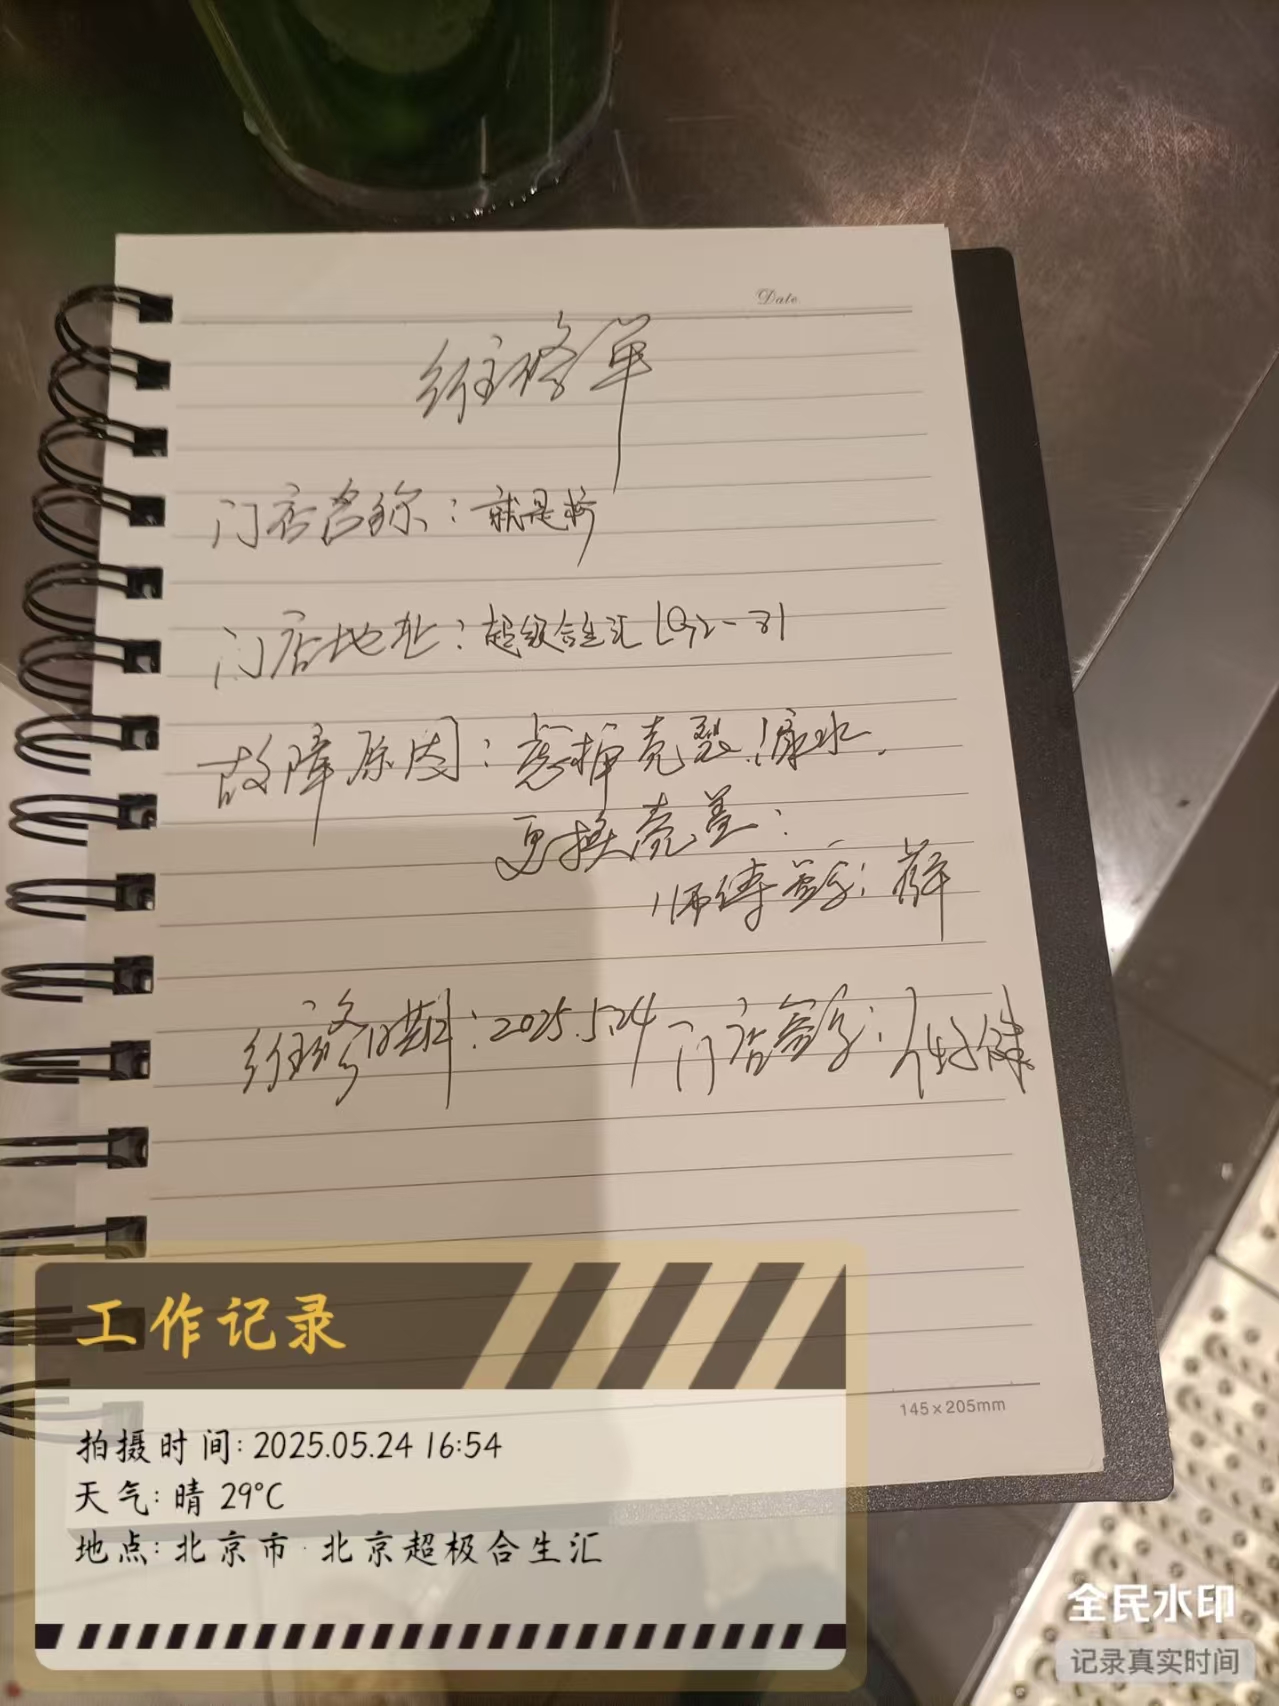 Date
维修单
门店名称：就是
门店地址：超级合生汇 LG2-31
故障原因：壳裂.漏水.
更换壳盖：
师傅签字：薛
维修日期：2025.5.24 门店签字：
145×205mm
工作记录
拍摄时间: 2025.05.24 16:54
天气: 晴 29°C
地点: 北京市·北京超极合生汇
全民水印
记录真实时间